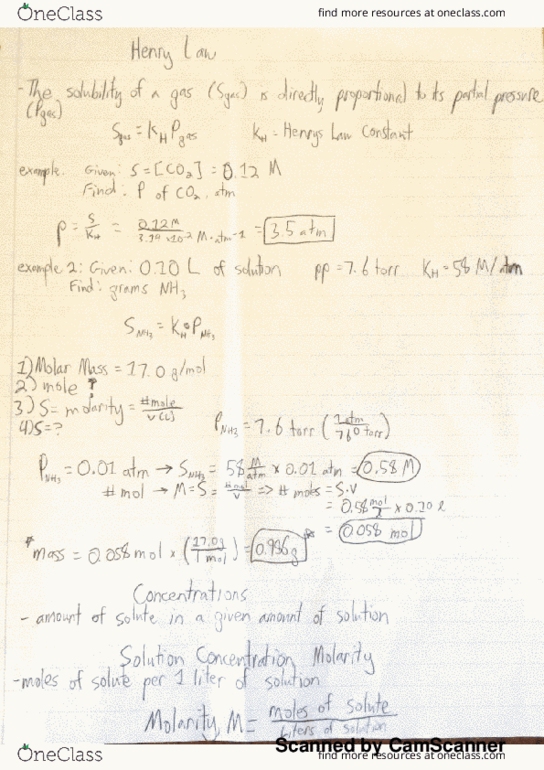 OneClass
find more resources at oneclass.com
Henry Law
- The solubility of a gas (Sgas) is directly proportional to its partial pressure
(Pgas)
Sgas = KH Pgas KH - Henrys Law Constant
example. Given: S = [CO2] = 0.12 M
Find: P of CO2 atm
P = S/KH = 0.12 M / 3.34 x10^-2 M·atm^-1 = 3.5 atm
example 2: Given: 0.10 L of solution pp = 7.6 torr KH = 58 M/atm
Find: grams NH3
SNH3 = KH • PNH3
1) Molar Mass = 17.0 g/mol
2) mole ?
3) S = molarity = #mole / V(L)
4) S = ?
PNH3 = 7.6 torr (1 atm / 760 torr)
PNH3 = 0.01 atm → SNH3 = 58 M/atm x 0.01 atm = 0.58 M
# mol → M = S = #mol/V => # moles = S·V
= 0.58 mol/L x 0.10 L
= 0.058 mol
* mass = 0.058 mol x (17.0g / 1 mol) = 0.986g *
Concentrations
- amount of solute in a given amount of solution
Solution Concentration Molarity
- moles of solute per 1 liter of solution
Molarity, M = moles of solute / Liters of solution
Scanned by CamScanner
OneClass
find more resources at oneclass.com